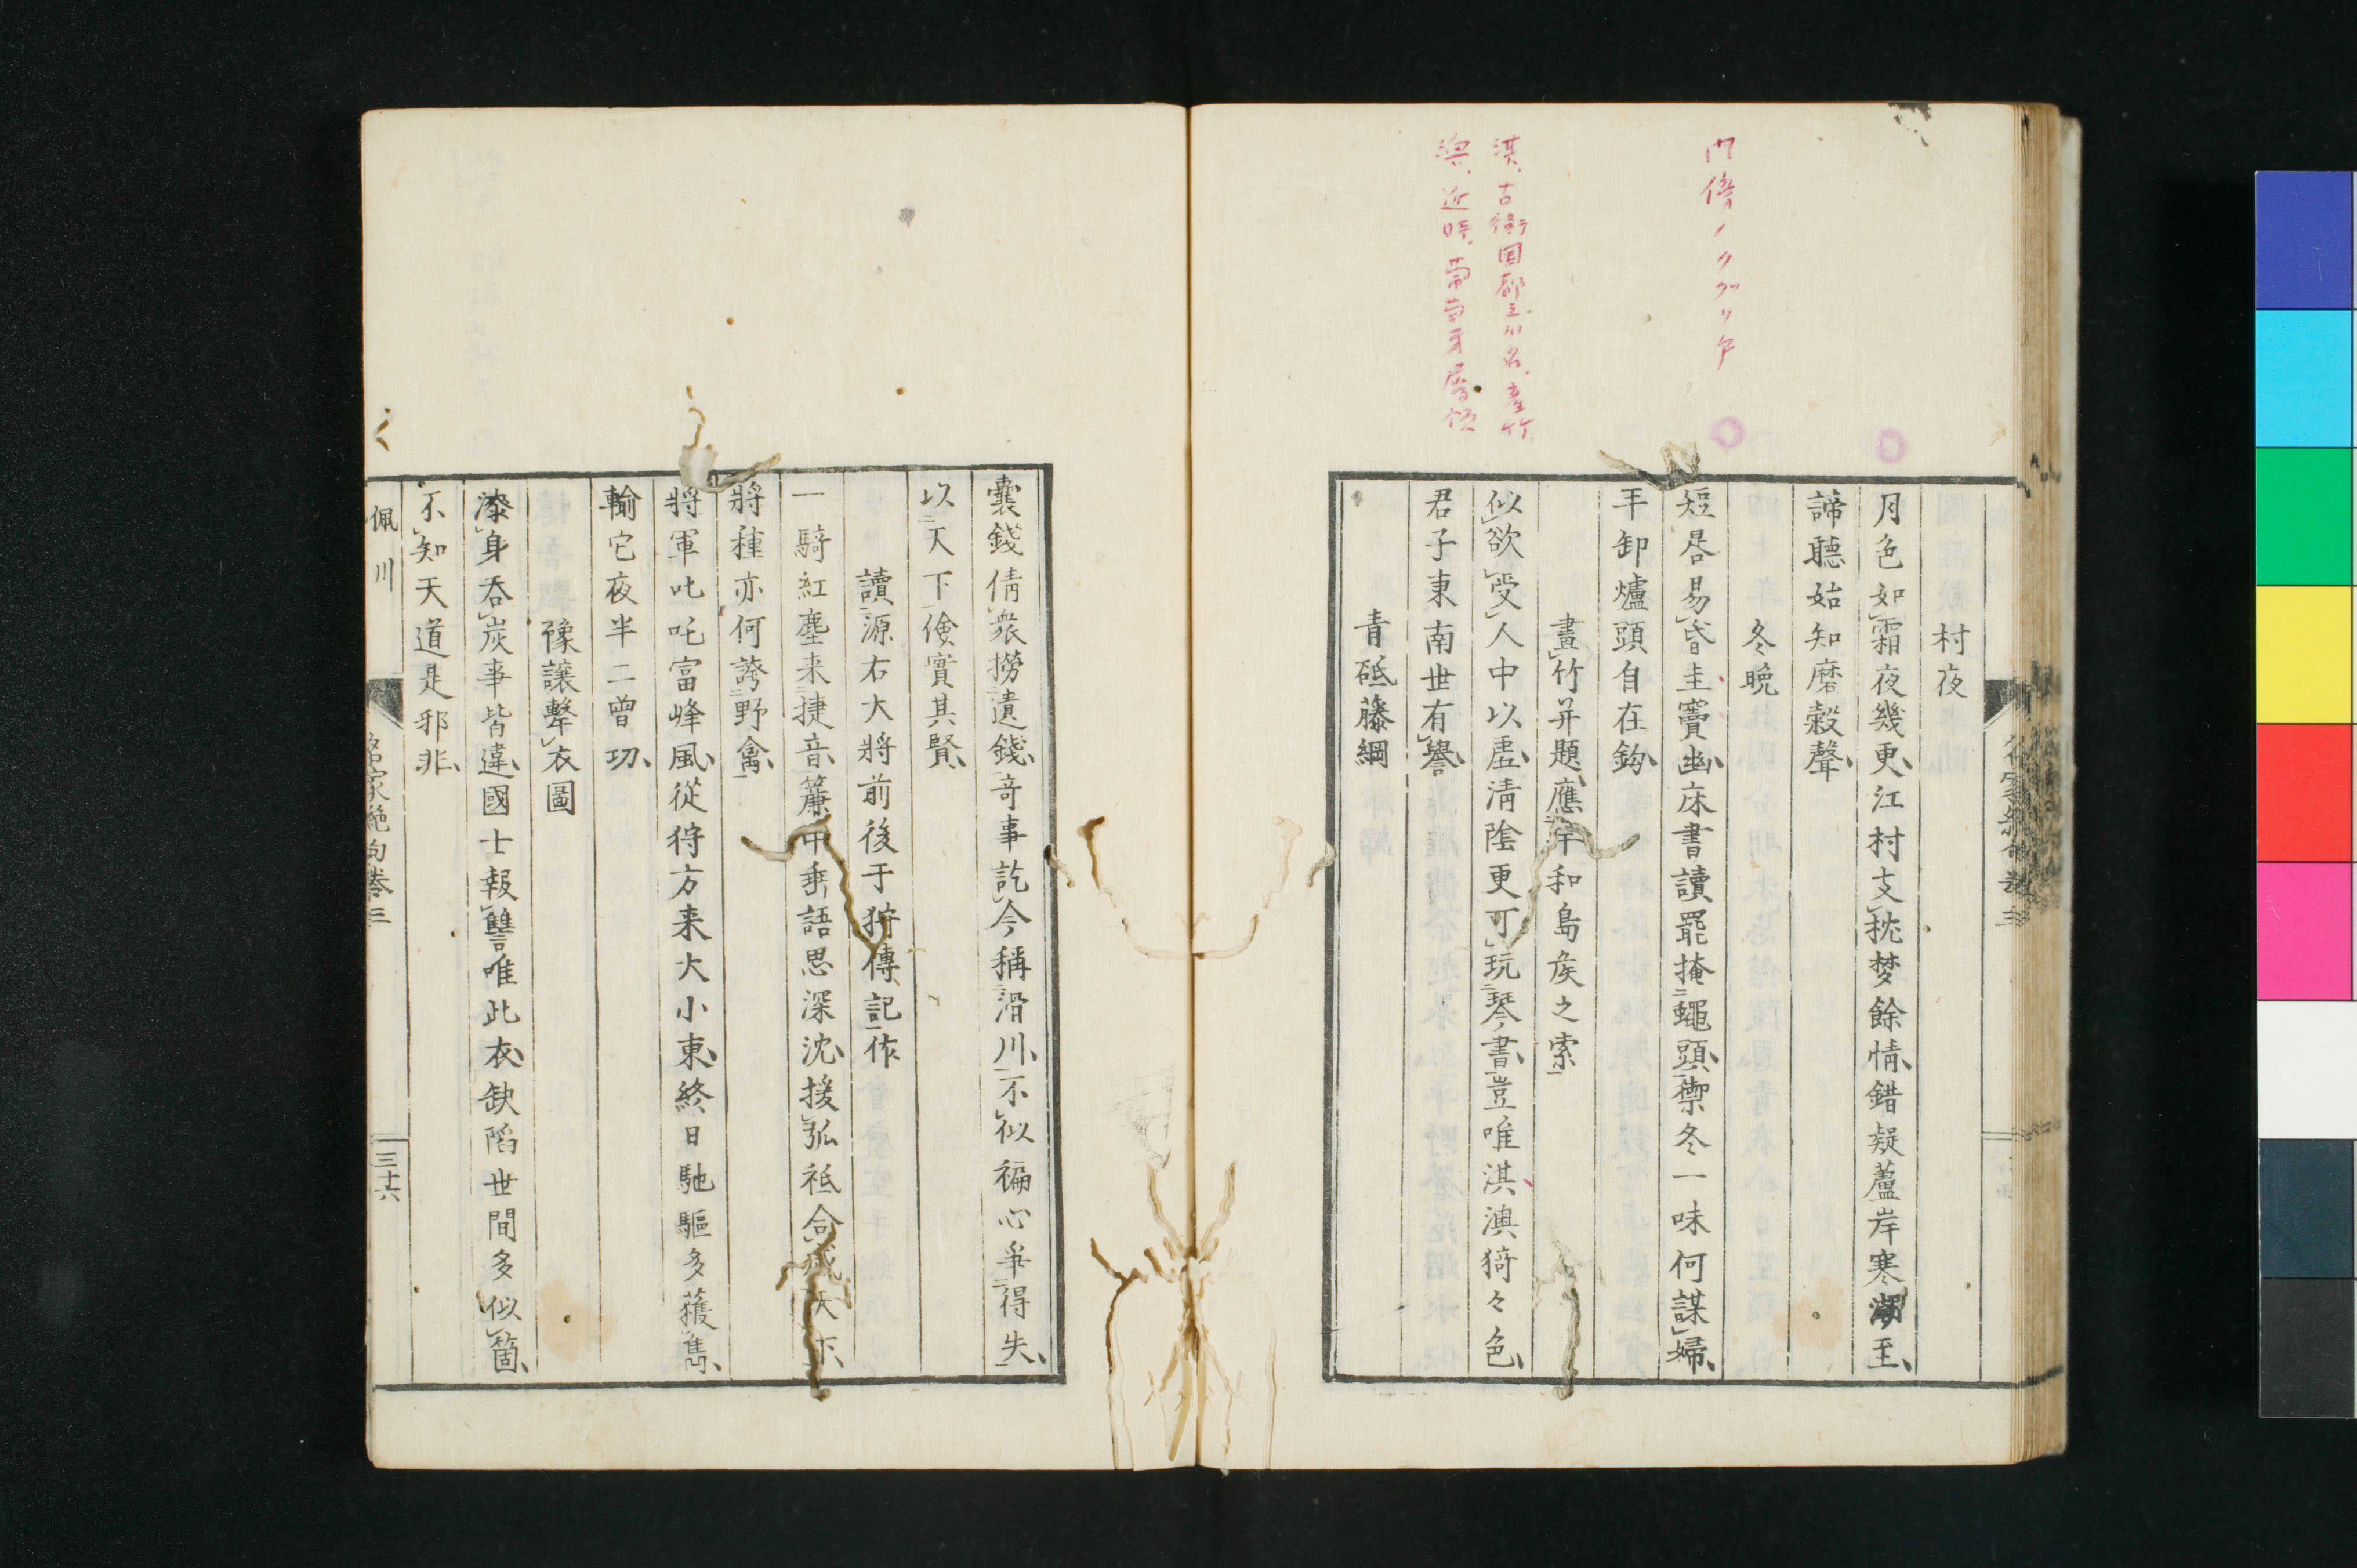 門傍ノクヾリ戸
淇、古衛国都之川名、産竹
澳、近時、
村夜
月色如霜夜幾更江村支枕梦餘情錯疑蘆岸寒潮至
諦聽始知磨穀聲
冬晩
短晷易昏圭竇幽床書讀罷掩蠅頭禦冬一味何謀婦
手卸爐頭自在鈎
畫竹并題應宇和島侯之索
似欲受人中以虚清陰更可玩琴書豈唯淇澳猗々色
君子東南世有譽
青砥藤綱
囊錢倩衆撈遺錢奇事訖今稱滑川不似褊心爭得失
以天下儉實其賢
讀源右大將前後于狩傳記作
一騎紅塵来捷音簾中垂語思深沈援弧祗合威天下
將種亦何誇野禽
將軍叱咤富峰風從狩方来大小東終日馳驅多獲雋
輸它夜半二曽功
豫讓擊衣圖
漆身吞炭事皆違國士報讐唯此衣缺陷世間多似箇
不知天道是邪非
佩川
名家絶句巻三
三十六